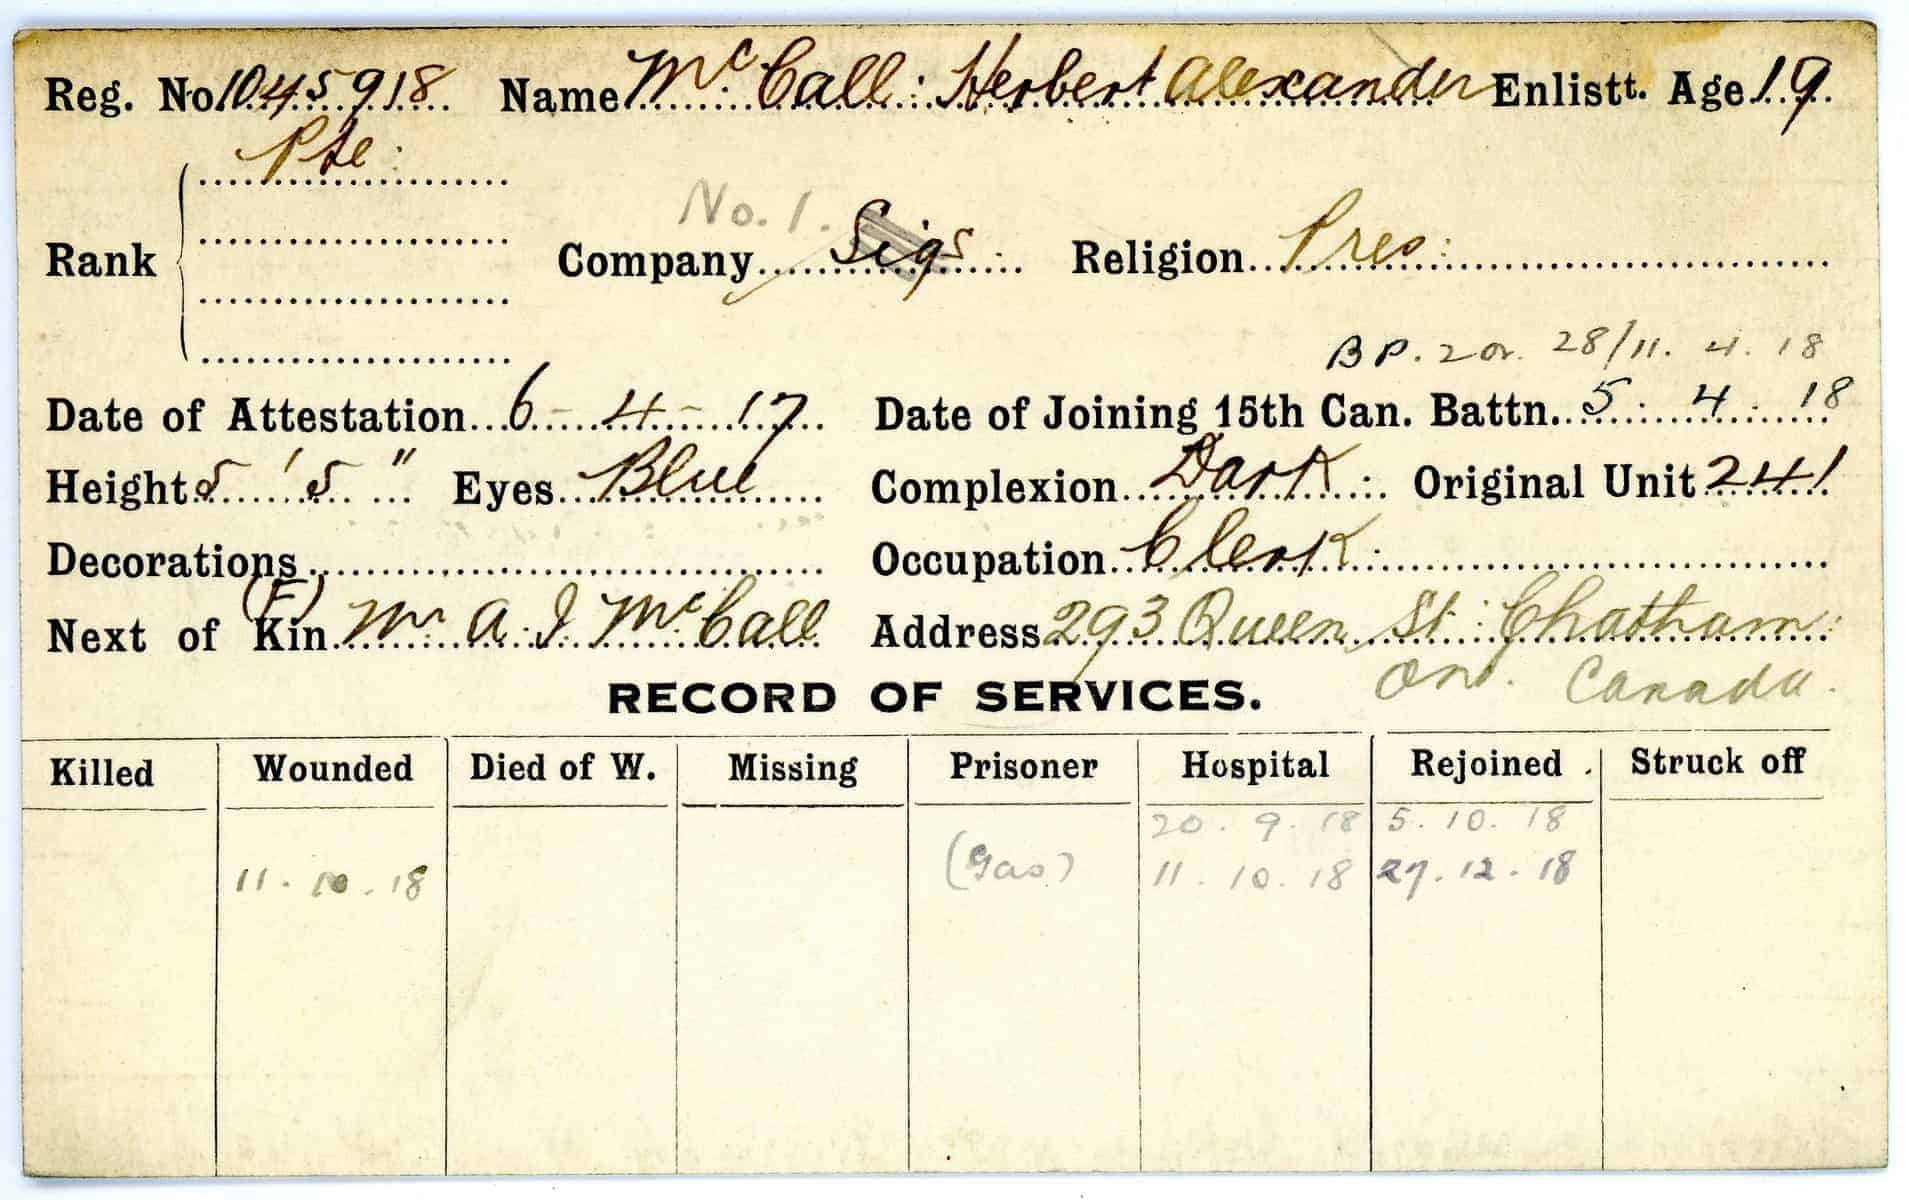 Reg. No 1045918 Name McCall: Herbert Alexander Enlistt. Age 19
Pte:
No. 1. Sigs
Rank Company Religion Pres:
BP. 2 or. 28/11. 4. 18
Date of Attestation 6-4-17 Date of Joining 15th Can. Battn. 5. 4. 18
Height 5' 5" Eyes Blue Complexion Dark: Original Unit 241
Decorations Occupation Clerk:
(F)
Next of Kin Mr. A. J. McCall Address 293 Queen St: Chatham:
Ont. Canada.
RECORD OF SERVICES.
Killed Wounded Died of W. Missing Prisoner Hospital Rejoined Struck off
20. 9. 18 5. 10. 18
11. 10. 18 (Gas) 11. 10. 18 27. 12. 18